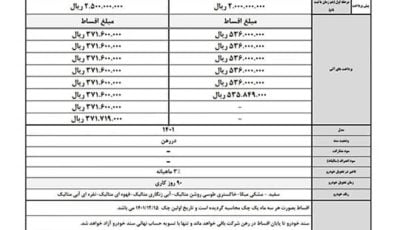 پیش پرداخت
۲.۰۰۰.۰۰۰.۰۰۰ ریال
۲.۵۰۰.۰۰۰.۰۰۰ ریال
مبلغ اقساط
مبلغ اقساط
۵۳۶.۰۰۰.۰۰۰ ریال
۳۷۱.۶۰۰.۰۰۰ ریال
۵۳۶.۰۰۰.۰۰۰ ریال
۳۷۱.۶۰۰.۰۰۰ ریال
۵۳۶.۰۰۰.۰۰۰ ریال
۳۷۱.۶۰۰.۰۰۰ ریال
۵۳۶.۰۰۰.۰۰۰ ریال
۳۷۱.۶۰۰.۰۰۰ ریال
۵۳۵.۸۴۹.۰۰۰ ریال
۳۷۱.۶۰۰.۰۰۰ ریال
-
۳۷۱.۶۰۰.۰۰۰ ریال
-
۳۷۱.۷۱۹.۰۰۰ ریال
پرداخت های آتی
مدل
۱۴۰۱
وضعیت سند
در رهن
سود مشارکت
-
-
تاخیر در تحویل خودرو
۳٪ ماهیانه
زمان تحویل خودرو
۹۰ روز کاری
رنگ خودرو
سفید - مشکی میکا - خاکستری طوسی روشن متالیک - آبی زنگاری متالیک - قهوه ای متالیک - نقره ای آبی متالیک
اقساط بصورت هر سه ماه یک چک محاسبه گردیده است و تاریخ اولین چک ۱۴۰۱/۱۲/۱۵ می باشد
سند خودرو تا پایان اقساط در رهن شرکت باقی خواهد ماند و تنها با تسویه حساب نهائی سند خودرو آزاد خواهد شد.